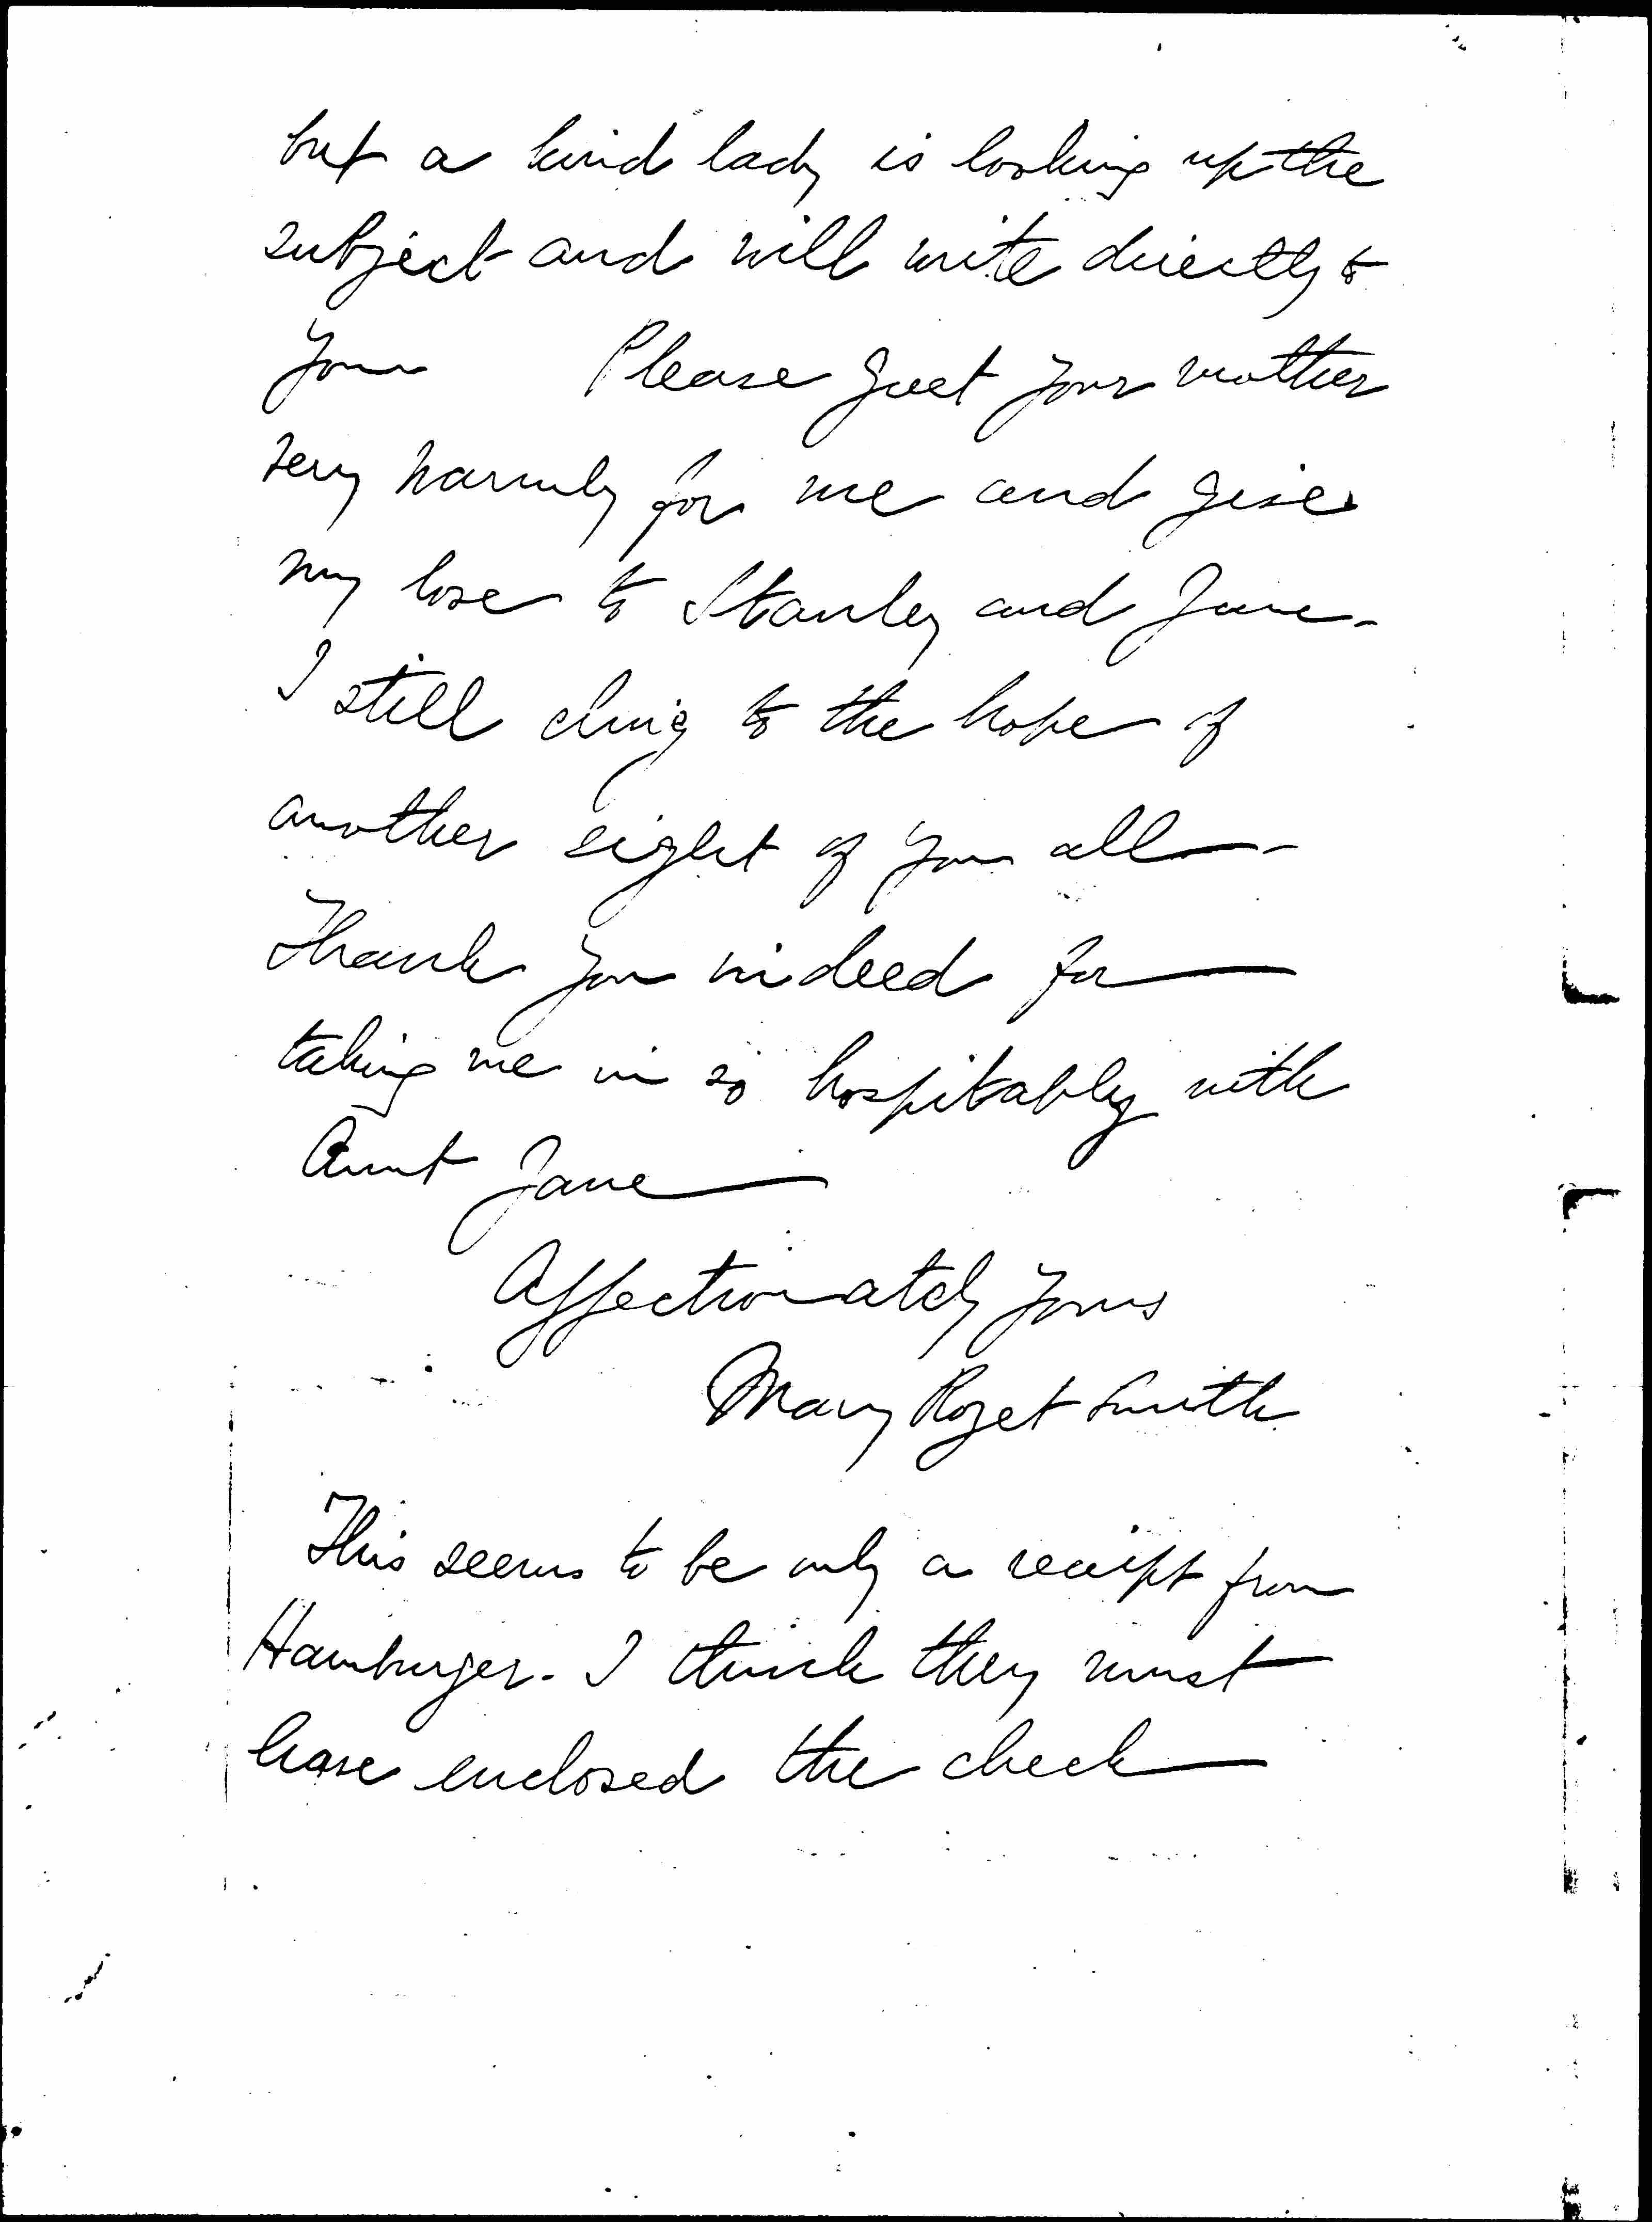 but a kind lady is looking up the
subject and will write directly to
you Please greet your mother
very warmly for me and give
my love to Stanley and June.
I still cling to the hope of
another sight of you all—
Thank you indeed for
taking me in so hospitably with
Aunt Jane
Affectionately yours
Mary Rozet Smith
This seems to be only a receipt from
Hamburger. I think they must
have enclosed the check